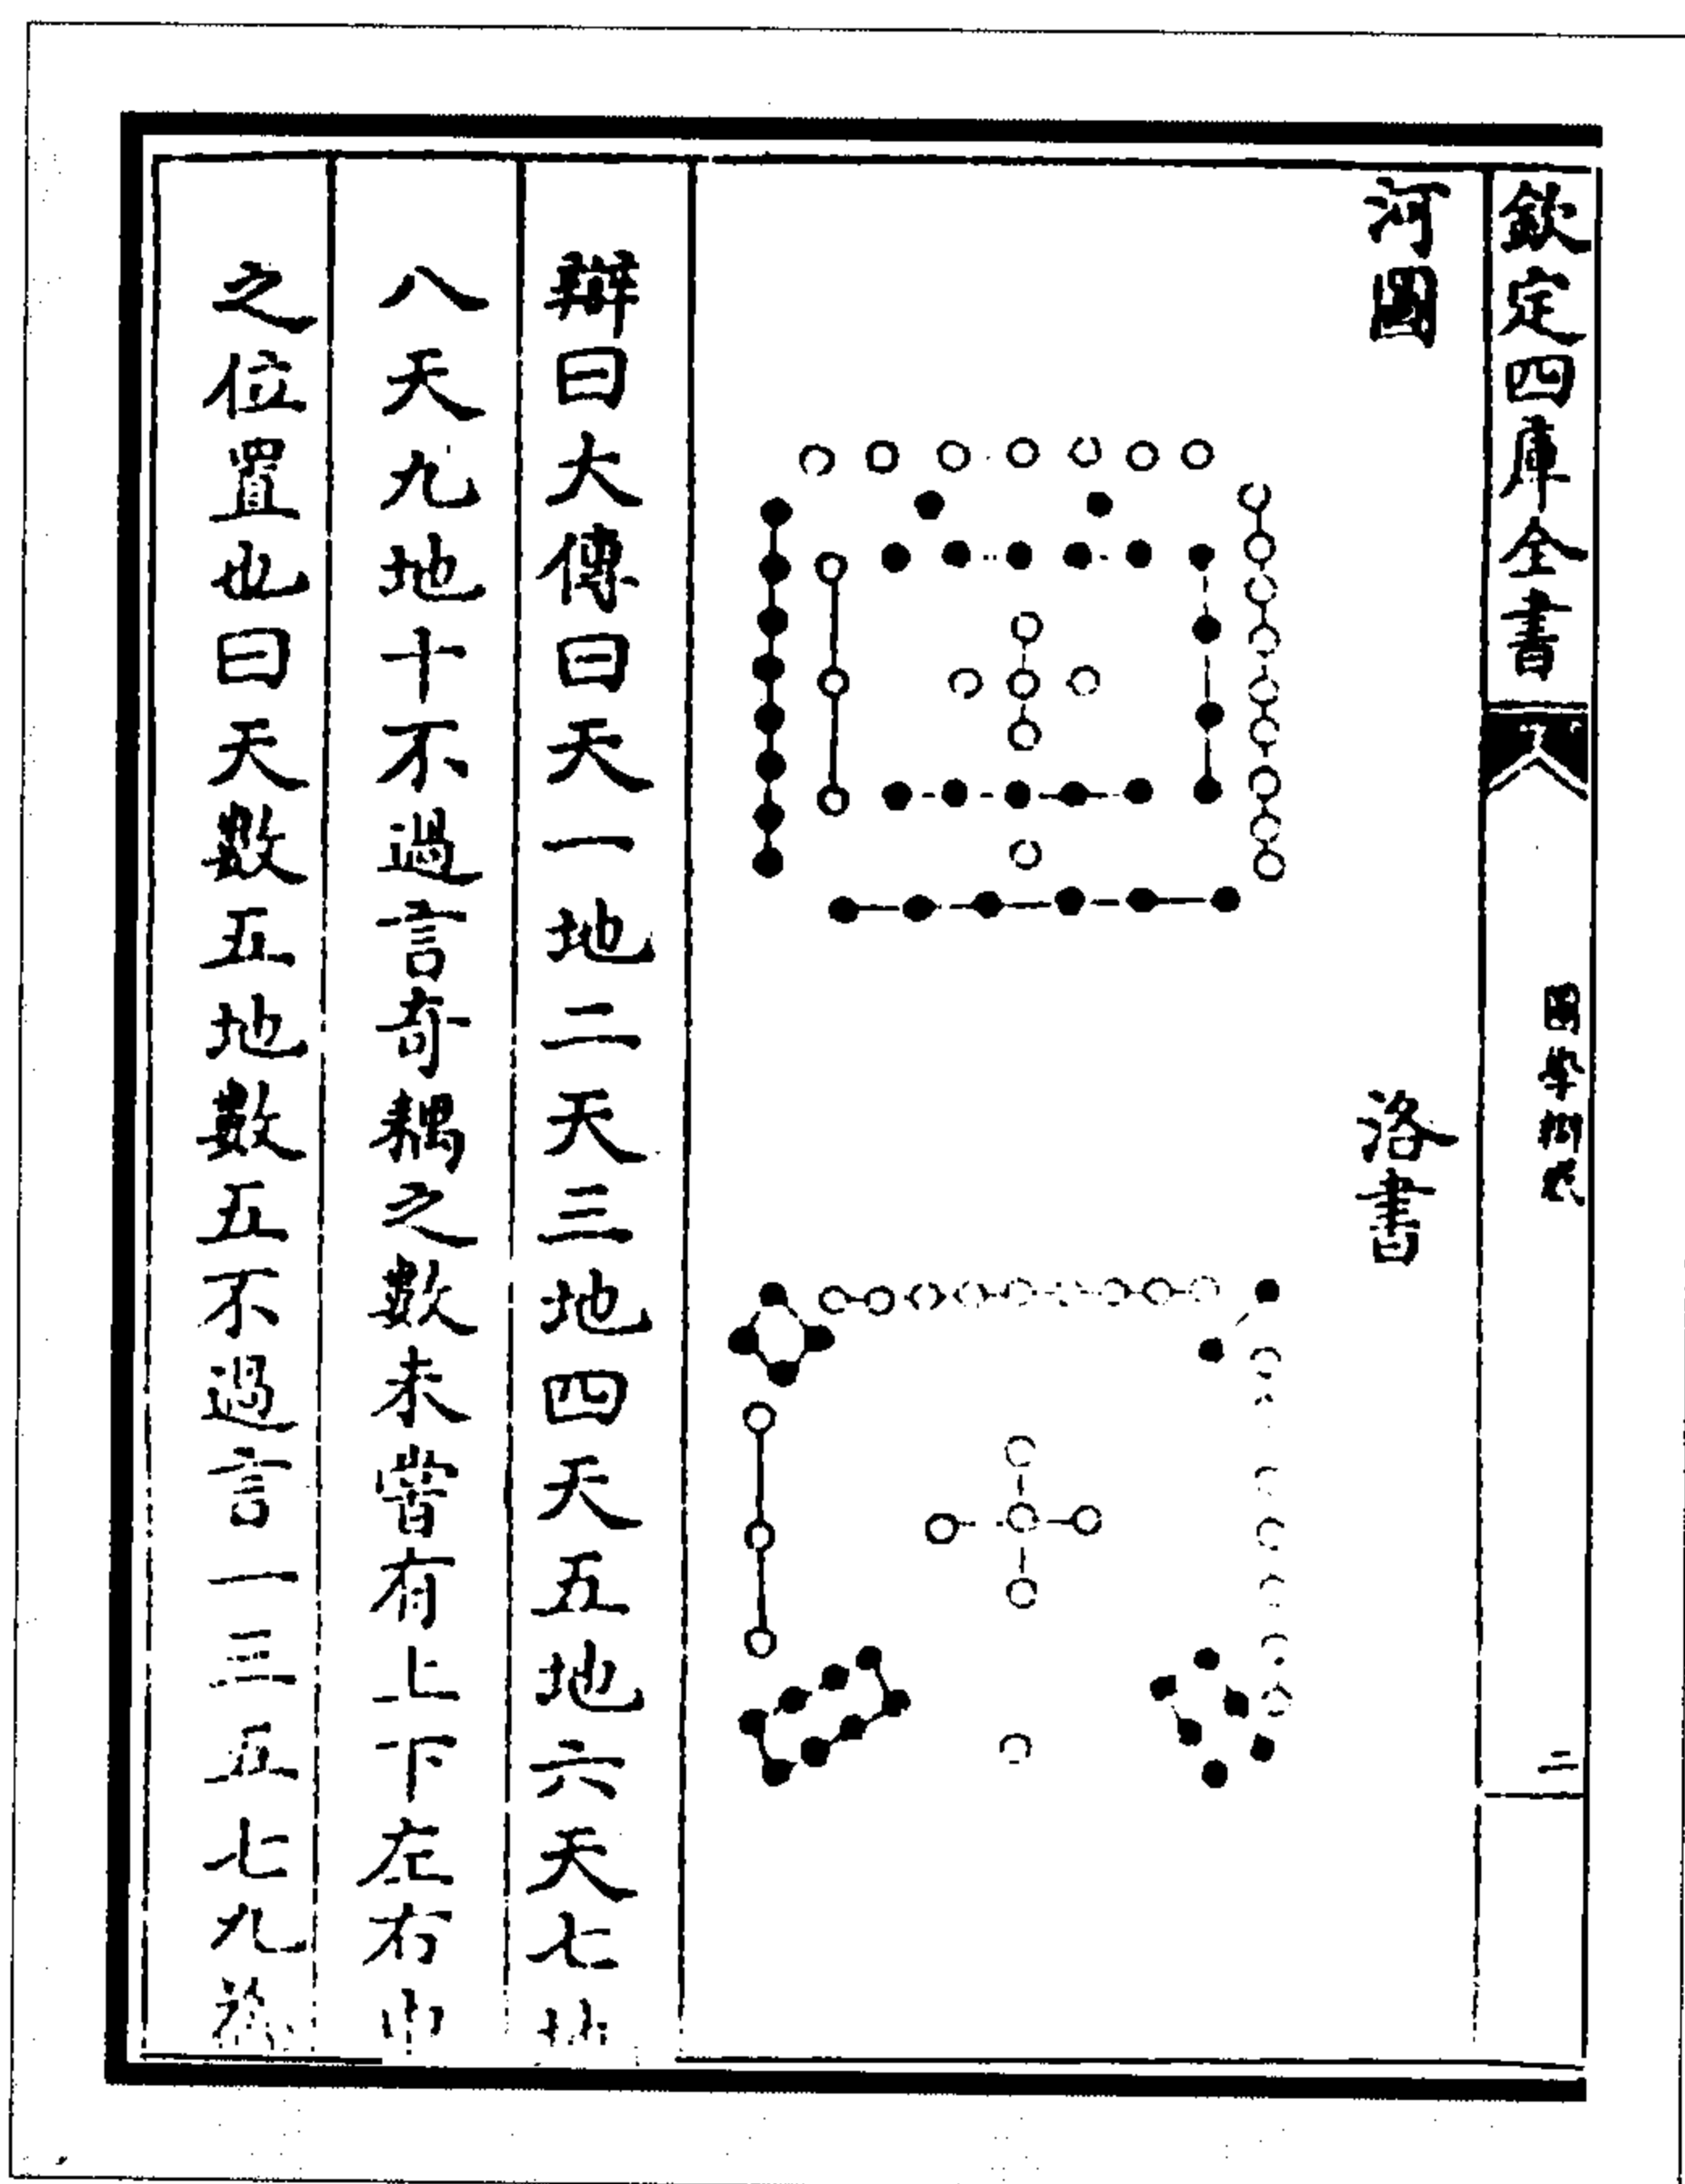 欽定四庫全書
圖學辯惑
二
河圖
洛書
辯曰大傳曰天一地二天三地四天五地六天七地
八天九地十不過言奇耦之數未嘗有上下左右中
之位置也曰天數五地數五不過言一三五七九為